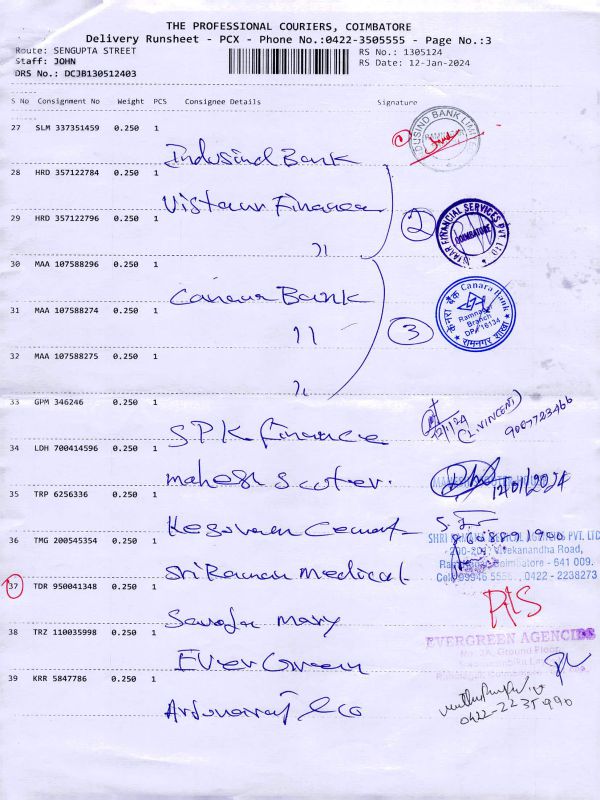 THE PROFESSIONAL COURIERS, COIMBATORE
Delivery Runsheet - PCX - Phone No.:0422-3505555 - Page No.:3
Route: SENGUPTA STREET RS No.: 1305124
Staff: JOHN RS Date: 12-Jan-2024
DRS No.: DCJB130512403
S No Consignment No Weight PCS Consignee Details Signature
27 SLM 337351459 0.250 1
Indusind Bank
1
DUSIND BANK LIMITED
28 HRD 357122784 0.250 1
Vistaar Finance
29 HRD 357122796 0.250 1
〃
2
TAAR FINANCIAL SERVICES PVT LTD
COIMBATORE
30 MAA 107588296 0.250 1
Canara Bank
31 MAA 107588274 0.250 1
〃
32 MAA 107588275 0.250 1
〃
3
केनरा बैंक Canara Bank
Ramnagar
Branch
DP: 16134
रामनगर शाखा
33 GPM 346246 0.250 1
SPK finance
12/1/24
(L. VINCENT)
9007723466
34 LDH 700414596 0.250 1
mahesh Scooter.
12/01/2024
35 TRP 6256336 0.250 1
Kesavan Cement
36 TMG 200545354 0.250 1
Sri Raman Medical
SHRI RAMANA MEDICAL AGENCIES PVT. LTD
200-201, Vivekanandha Road,
Ramnagar, Coimbatore - 641 009.
0422 - 2238273
37 TDR 950041348 0.250 1
mary
RTS
38 TRZ 110035998 0.250 1
Ever Green
EVERGREEN AGENCIES
Ground Floor,
39 KRR 5847786 0.250 1
& co
0422-2235990